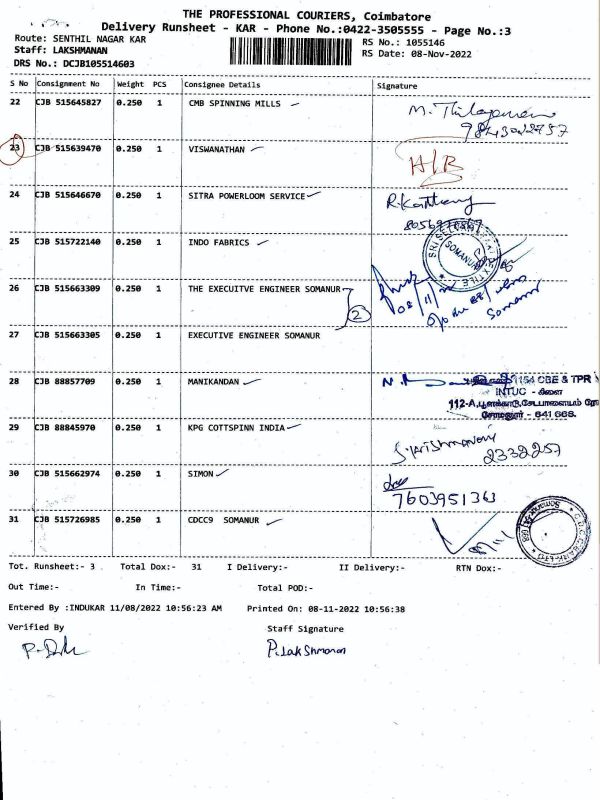 THE PROFESSIONAL COURIERS, Coimbatore
Delivery Runsheet - KAR - Phone No.:0422-3505555 - Page No.:3
Route: SENTHIL NAGAR KAR
RS No.: 1055146
Staff: LAKSHMANAN
RS Date: 08-Nov-2022
DRS No.: DCJB105514603
S No Consignment No Weight PCS Consignee Details Signature
22 CJB 515645827 0.250 1 CMB SPINNING MILLS
23 CJB 515639470 0.250 1 VISWANATHAN H/B
24 CJB 515646670 0.250 1 SITRA POWERLOOM SERVICE
25 CJB 515722140 0.250 1 INDO FABRICS
SOMANUR
26 CJB 515663309 0.250 1 THE EXECUITVE ENGINEER SOMANUR
2
27 CJB 515663305 0.250 1 EXECUTIVE ENGINEER SOMANUR
28 CJB 88857709 0.250 1 MANIKANDAN
1154 CBE & TPR
INTUC - கிளை
சோமனூர் - 641 668.
29 CJB 88845970 0.250 1 KPG COTTSPINN INDIA
2332257
30 CJB 515662974 0.250 1 SIMON
7603951363
31 CJB 515726985 0.250 1 CDCC9 SOMANUR
Tot. Runsheet:- 3 Total Dox:- 31 I Delivery:- II Delivery:- RTN Dox:-
Out Time:- In Time:- Total POD:-
Entered By :INDUKAR 11/08/2022 10:56:23 AM Printed On: 08-11-2022 10:56:38
Verified By Staff Signature
P.Lakshmanan